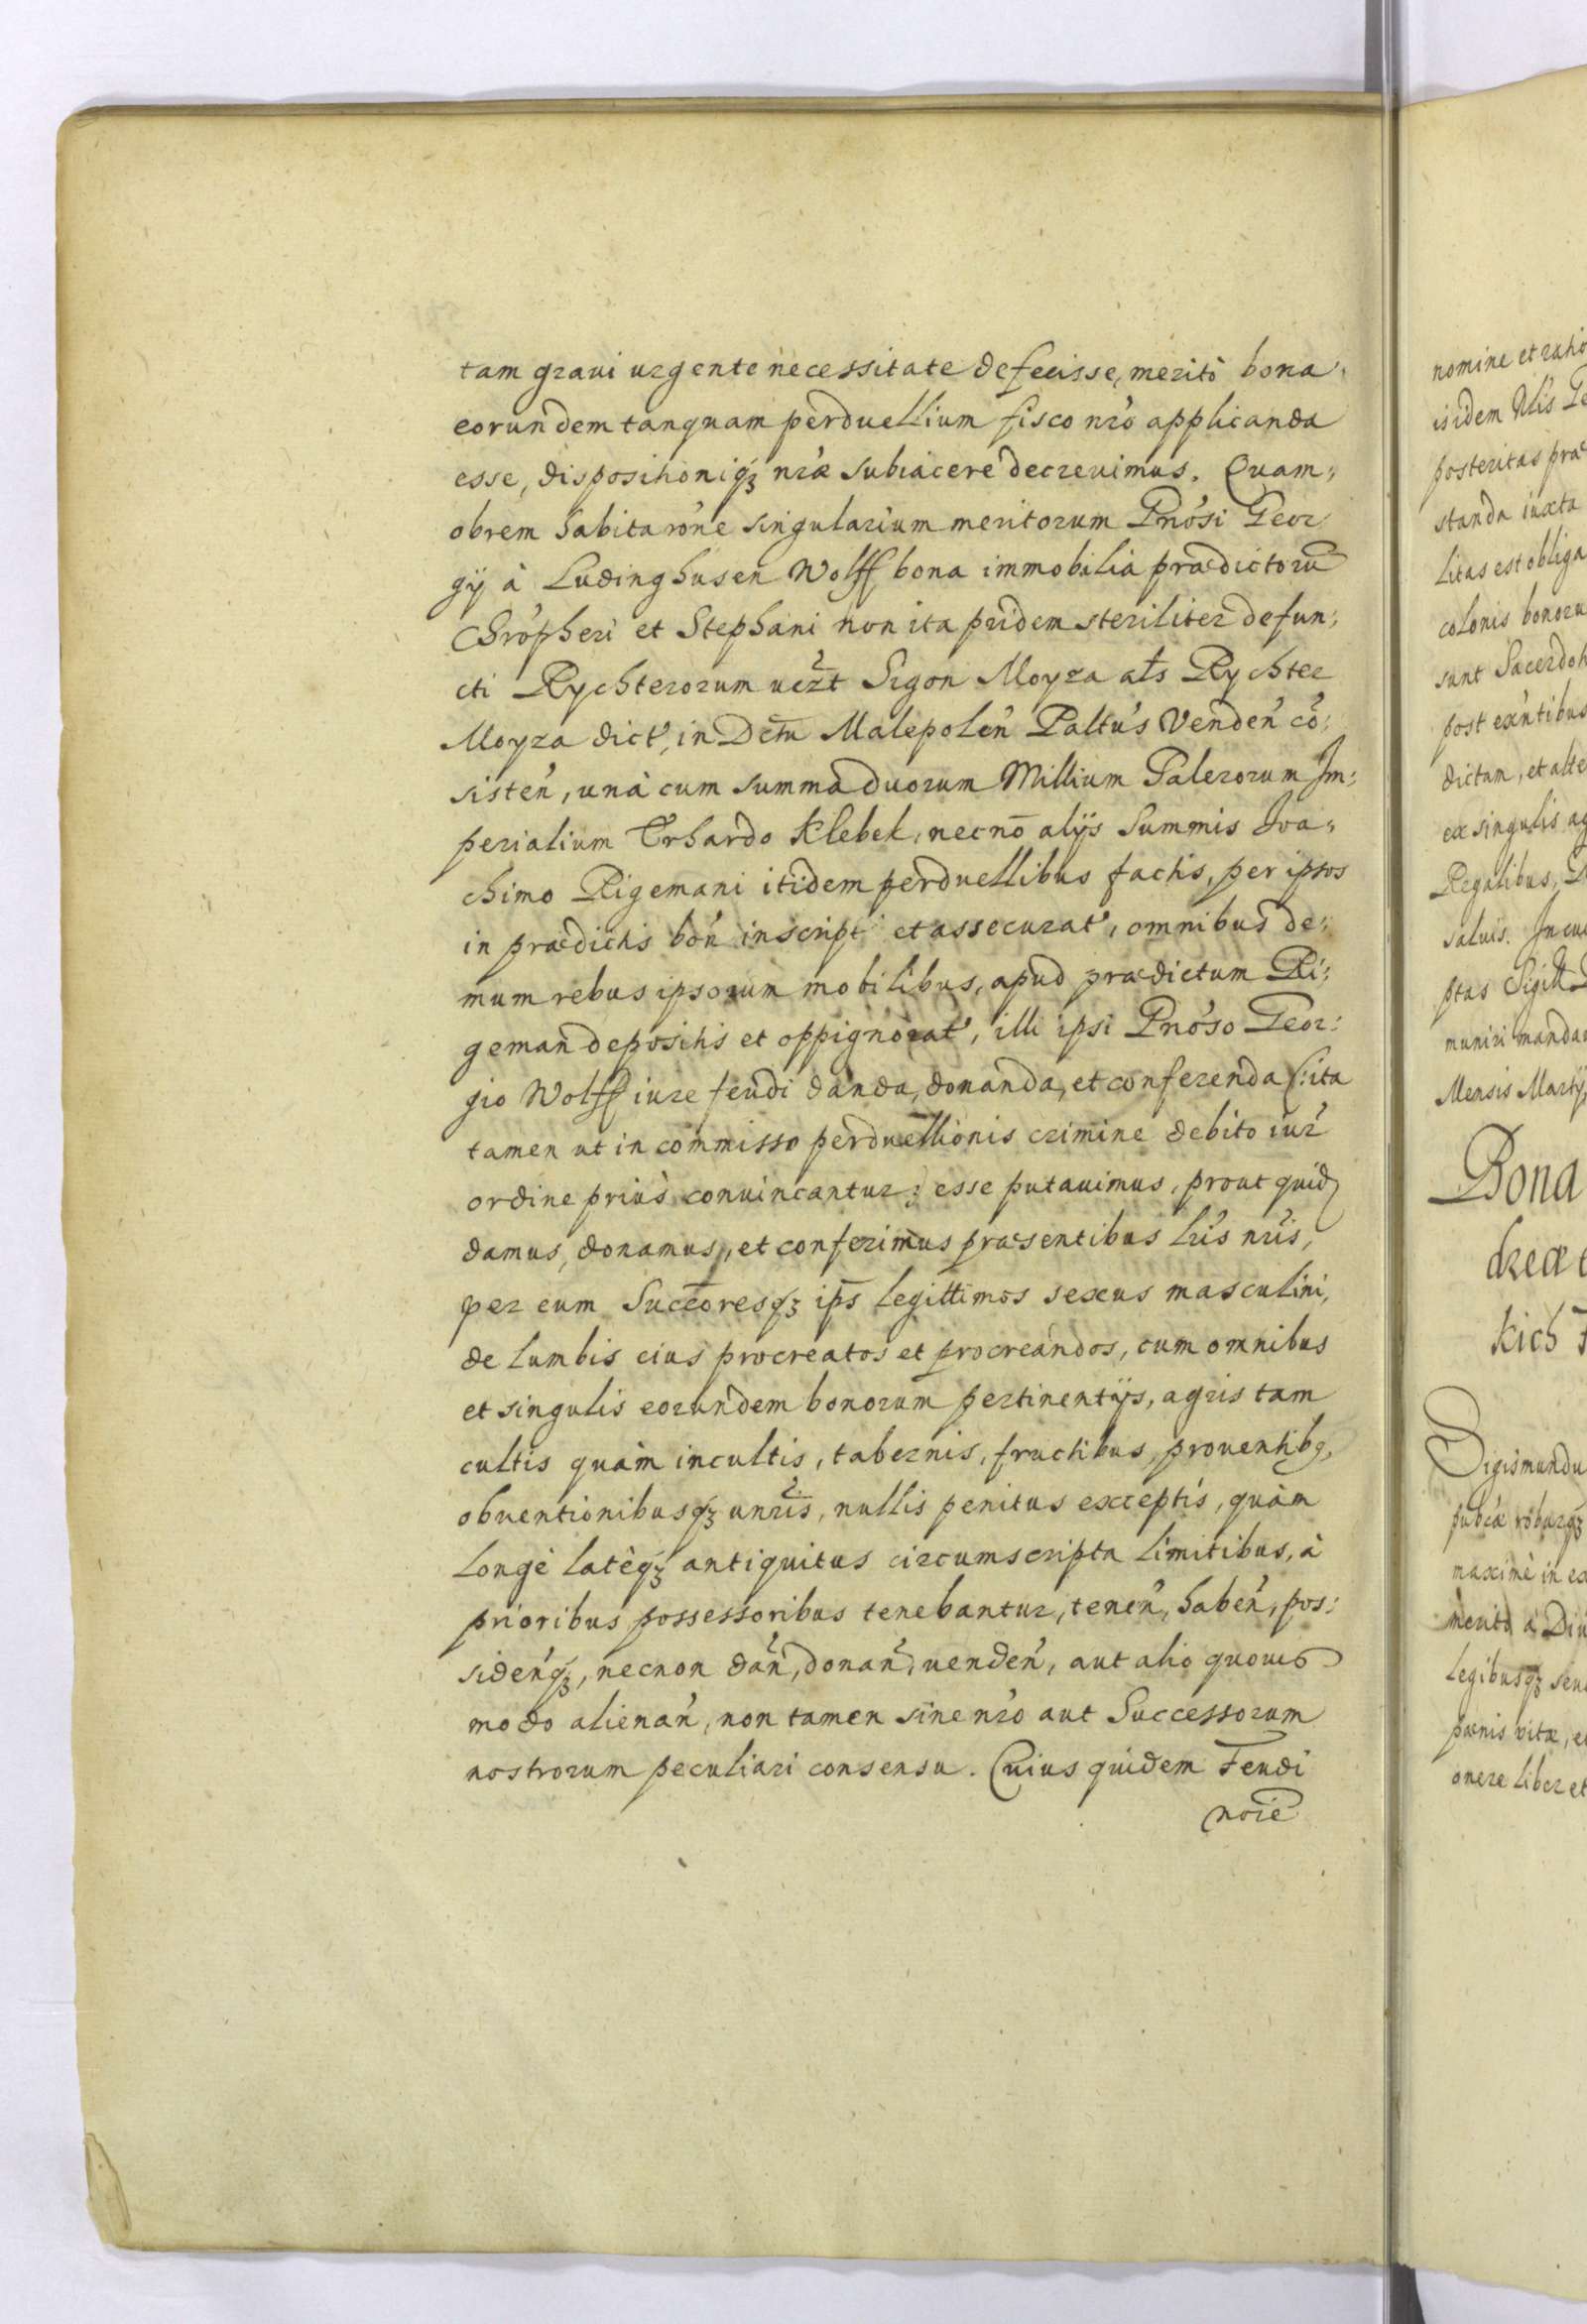 tam graui urgente necessitate defecisse, meritò bona
eorundem tanquam perduellium fisco nr̃o applicanda
esse, dispositioniq₃ nr̃æ subiacere decreuimus. Quam,
obrem habita rõne singularium meritorum Gnõsi Geor
gÿ à Ludinghusen Wolff, bona immobilia prædictorũ
Chrõpheri et Stephani non ita pridem steriliter defun,
cti Rychterorum uert̃ Sigon Moyza al̃s Rychter
Moyza dict', in Dctũ Malepoleñ Paltũs Vendeñ cõ:
sisteñ, unà cum summa duorum Millium Talerorum Im:
perialium Erhardo Klebek, necnõ alÿs Summis Joa,
chimo Rigemani itidem perduellibus factis, per ipsos
in prædictis boñ inscript' et assecurat', omnibus de:
mum rebus ipsorum mobilibus, apud prædictum Ri:
gemañ depositis et oppignorat', illi ipsi Gnõso Geor:
gio Wolff iure feudi danda, donanda, et conferenda (: ita
tamen ut in commisso perduellionis crimine debito iur̃
ordine prius conuincantur :) esse putauimus, prout quid
damus, donamus, et conferimus præsentibus lr̃is nr̃is,
per eum Succoresq₃ ip̃s legittimos sexus masculini,
de lumbis eius procreatos et procreandos, cum omnibus
et singulis eorundem bonorum pertinentÿs, agris tam
cultis quàm incultis, tabernis, fructibus, prouentibq,
obuentionibusq₃ unr̃is, nullis penitus exceptis, quàm
longè latèq₃ antiquitus circumscripta limitibus, à
prioribus possessoribus tenebantur, teneñ, habeñ, pos:
sideñq₃, necnon dañ, donañ, uendeñ, aut alio quouis
modo alienañ, non tamen sine nr̃o aut Successorum
nostrorum peculiari consensu. Cuius quidem Feudi
noie
nomine et ratio
posteritas præ
standa iuxta
litas est obliga
colonis bonoru
sunt Sacerdot
post exñtibus
dictam, et alte
ex singulis ag
Regalibus,
saluis. In cui
ptas Sigill
muniri manda
Mensis Martÿ
Bona
dreæ t
kich
Sigismundu
pubcæ roburq₃
maximè in ex
meritò à Diu
legibusq₃ seu
pœnis vitæ, e
onere liber et